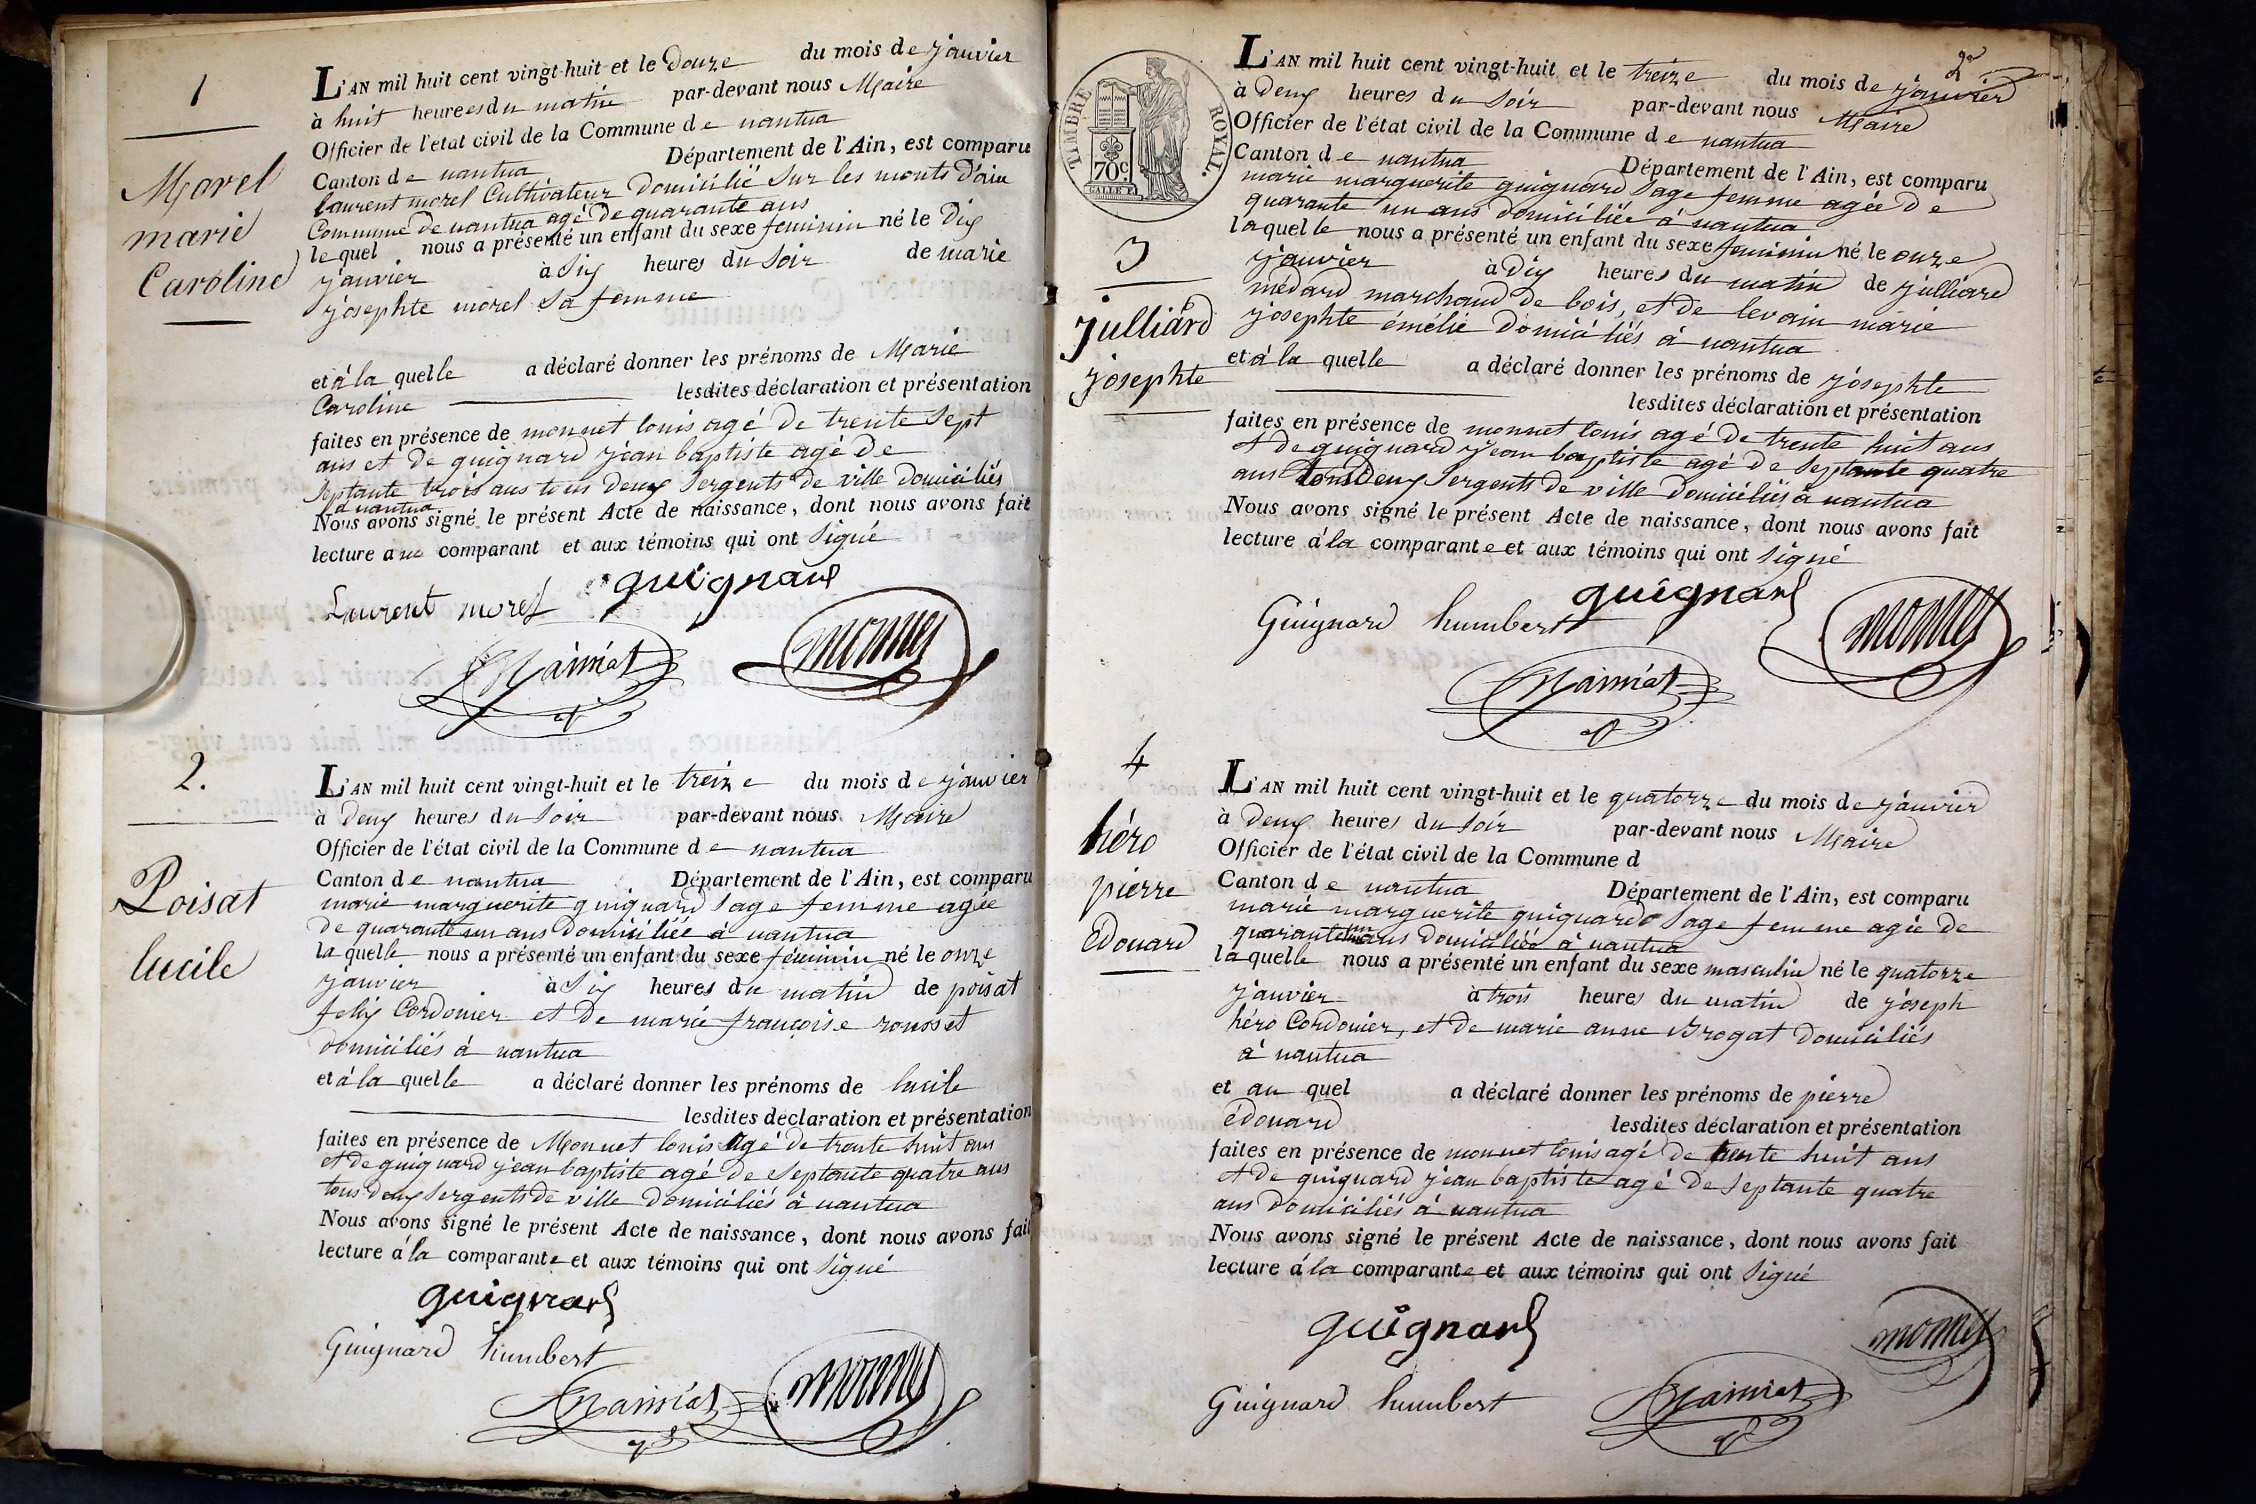 1
Morel
marie
Caroline
L'AN mil huit cent vingt-huit et le Douze du mois de janvier
à huit heures du matin par-devant nous Maire
Officier de l'état civil de la Commune de nantua
Canton de nantua Département de l'Ain, est comparu
laurent morel Cultivateur Domicilié Sur les monts D'ain
Commune De nantua agé De quarante ans
le quel nous a présenté un enfant du sexe feminin né le Dix
janvier à Six heures du Soir de marie
josephte morel Sa femme
et à la quelle a déclaré donner les prénoms de Marie
Caroline lesdites déclaration et présentation
faites en présence de monnet louis agé De trente Sept
ans et De guignard jean baptiste agé De
Septante trois ans tous Deux Sergents De ville Domiciliés
à nantua
Nous avons signé le présent Acte de naissance, dont nous avons fait
lecture au comparant et aux témoins qui ont Signé
guignard
Laurent morel
monnet
2.
Poisat
lucile
L'AN mil huit cent vingt-huit et le treize du mois de janvier
à Deux heures du Soir par-devant nous Maire
Officier de l'état civil de la Commune de nantua
Canton de nantua Département de l'Ain, est comparu
marie marguerite guignard Sage femme agée
De quarante un ans Domiciliée à nantua
la quelle nous a présenté un enfant du sexe féminin né le onze
janvier à Six heures du matin de poisat
felix Cordonier et De marie françoise rousset
Domiciliés à nantua
et à la quelle a déclaré donner les prénoms de lucile
lesdites déclaration et présentation
faites en présence de Monnet louis Agé De trente huit ans
et De guignard jean baptiste agé De Septante quatre ans
tous Deux Sergents De ville Domiciliés à nantua
Nous avons signé le présent Acte de naissance, dont nous avons fait
lecture à la comparante et aux témoins qui ont Signé
guignard
Guignard humbert
monnet
2e
TIMBRE ROYAL.
70c.
3
julliard
josephte
L'AN mil huit cent vingt-huit et le treize du mois de janvier
à Deux heures du Soir par-devant nous Maire
Officier de l'état civil de la Commune de nantua
Canton de nantua Département de l'Ain, est comparu
marie marguerite guignard Sage femme agée De
quarante un ans domiciliée à nantua
laquelle nous a présenté un enfant du sexe feminin né le onze
janvier à Dix heures du matin de julliard
médard marchand De bois, et De levrain marie
josephte émélie Domiciliés à nantua
et à la quelle a déclaré donner les prénoms de josephte
lesdites déclaration et présentation
faites en présence de monnet louis agé De trente huit ans
et De guignard jean baptiste agé De Septante quatre
ans tous Deux Sergents De ville Domiciliés à nantua
Nous avons signé le présent Acte de naissance, dont nous avons fait
lecture à la comparante et aux témoins qui ont Signé
guignard
Guignard humbert
monnet
4
héro
pierre
Edouard
L'AN mil huit cent vingt-huit et le quatorze du mois de janvier
à Deux heures du Soir par-devant nous Maire
Officier de l'état civil de la Commune d
Canton de nantua Département de l'Ain, est comparu
marie marguerite guignard Sage femme agée De
quarante un ans Domiciliée à nantua
la quelle nous a présenté un enfant du sexe masculin né le quatorze
janvier à trois heures du matin de joseph
héro Cordonier, et De marie anne Brogat Domiciliés
à nantua
et au quel a déclaré donner les prénoms de pierre
édouard lesdites déclaration et présentation
faites en présence de monnet louis agé De trente huit ans
et De guignard jean baptiste agé De Septante quatre
ans Domiciliés à nantua
Nous avons signé le présent Acte de naissance, dont nous avons fait
lecture à la comparante et aux témoins qui ont Signé
guignard
monnet
Guignard humbert